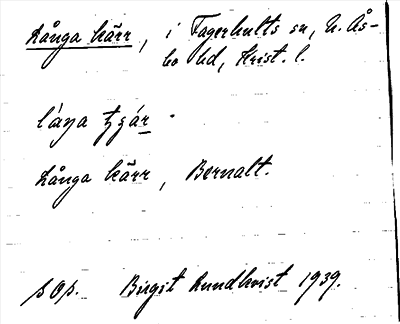 Långa kärr, i Fagerhults sn, N. Ås-
bo hd, Krist. l.
Långa kärr, Bernalt.
s Op. Birgit Rundkvist 1939.